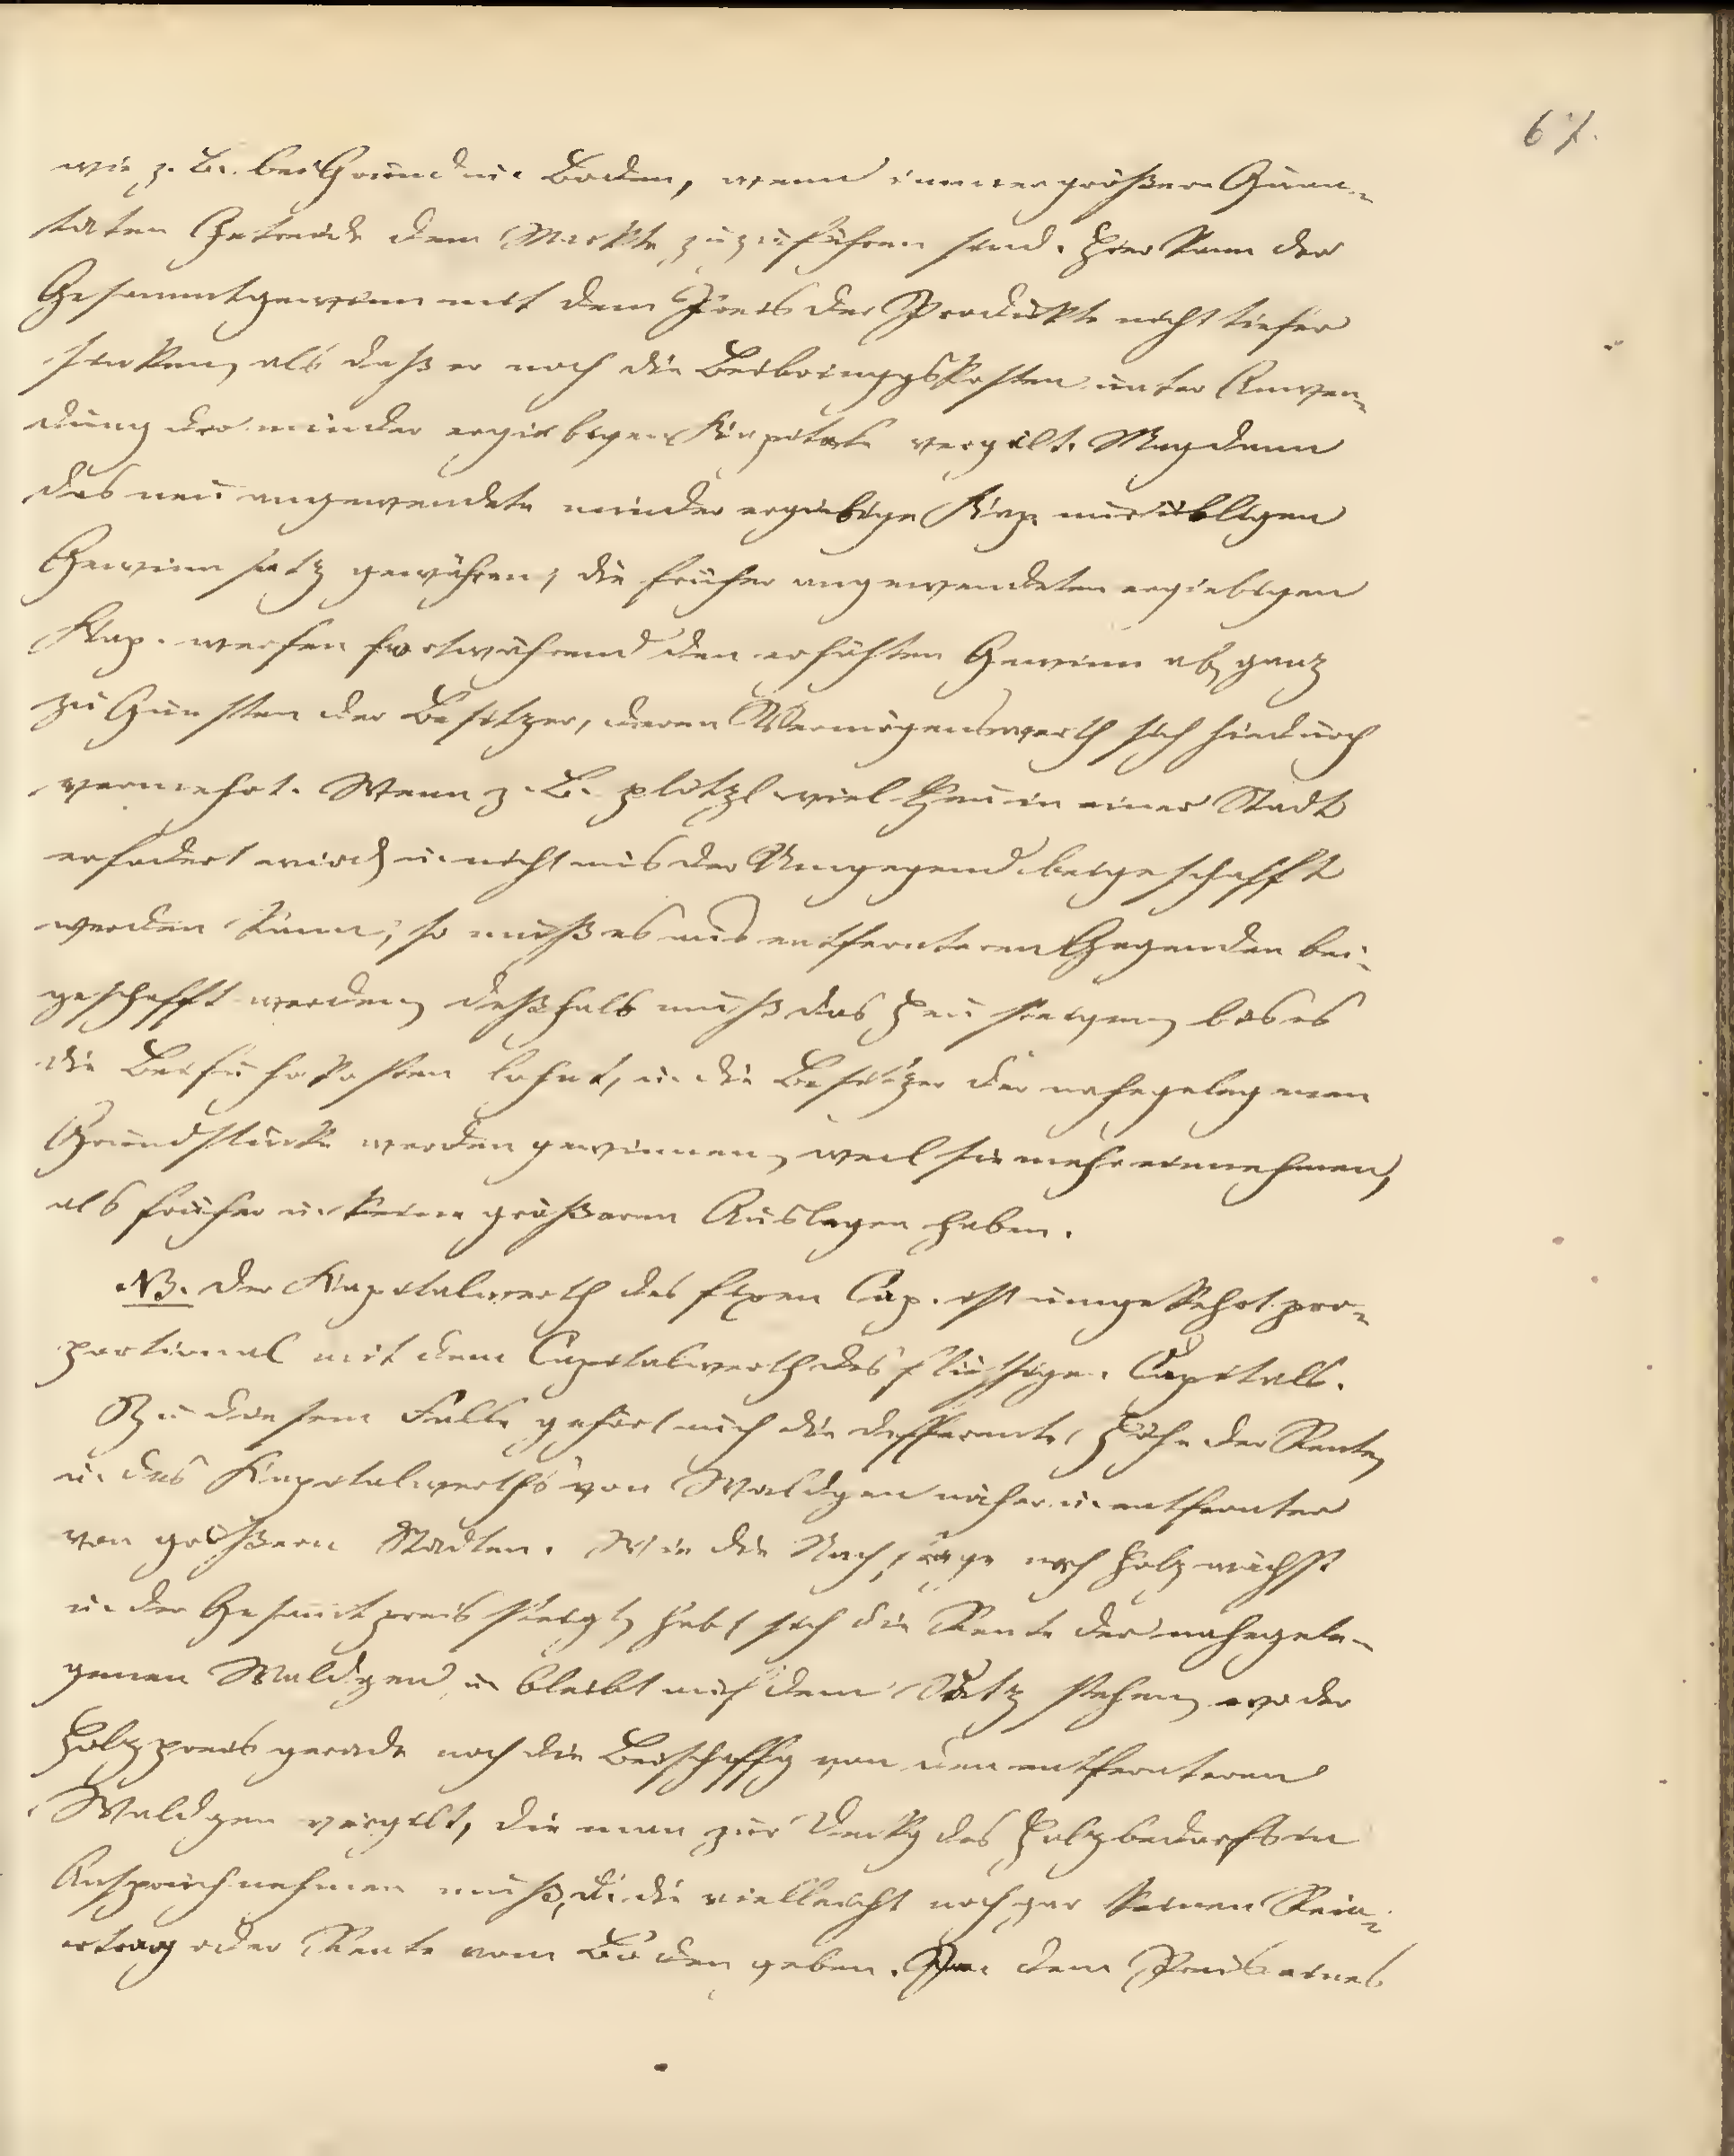 67.
wie z. B. bei Grund u. Boden, wenn immer größere Quan-
täten Getreide dem Markte zuzuführen sind. Hier kann der
Gesammtgewinn mit dem Preis der Produkte nicht tiefer
sinken, als daß er noch die Beibringgskosten unter Anwen-
dung der minder ergiebigen Kapitale vergilt. Mag dann
das neu angewendete minder ergiebige Kap. nur üblichen
Gewinnsatz gewähren; die früher angewendeten ergiebigen
Kap. werfen fortwährend den erhöhten Gewinn ab, ganz
zu Gunsten der Besitzer, deren Vermögenswerth sich hiedurch
vermehrt. Wenn z. B. plötzl. viel Heu in einer Stadt
erfodert wird, u. nicht aus der Umgegend beigeschafft
werden kann, so muß es aus entfernteren Gegenden bei-
geschafft werden, deßhalb muß das Heu steigen, bis es
die Beifuhrkosten lohnt, u. die Besitzer der nahegelegenen
Grundstücke werden gewinnen, weil sie mehr einnehmen,
als früher u. keine größeren Auslagen haben.
NB. Der Kapitalwerth des fixen Cap. ist umgekehrt pro-
portional mit dem Capitalswerth des flüssigen Capitals.
Zu diesem Falle gehört auch die differente Höhe der Rente,
u. des Kapitalwerths von Waldgen näher u. entfernter
von größern Städten. Wie die Nachfrage nach Holz wächst
u. der Gesammtpreis steigt, hebt sich die Rente der nahegele-
genen Waldgen u. bleibt auf dem Satz stehen, wo der
Holzpreis gerade noch die Beischaffg von den entfernteren
Waldgen vergilt, die man zur Deckg des Holzbedarfs in
Anspruch nehmen muß, die vielleicht noch gar keinen Rein-
ertrag oder Rente vom Boden geben. dem Preis eines